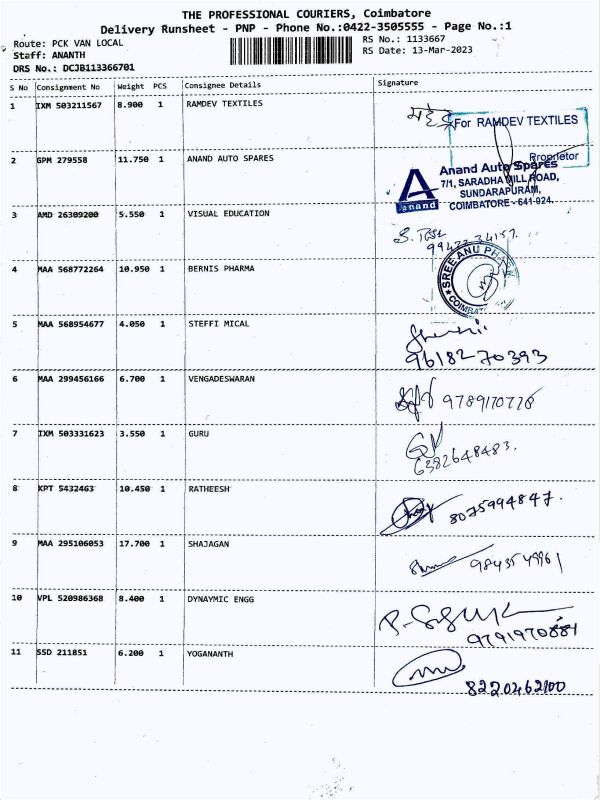 THE PROFESSIONAL COURIERS, Coimbatore
Delivery Runsheet - PNP - Phone No.:0422-3505555 - Page No.:1
Route: PCK VAN LOCAL
RS No.: 1133667
Staff: ANANTH
RS Date: 13-Mar-2023
DRS No.: DCJB113366701
S No Consignment No Weight PCS Consignee Details Signature
1 IXM 503211567 8.900 1 RAMDEV TEXTILES
For RAMDEV TEXTILES
Proprietor
2 GPM 279558 11.750 1 ANAND AUTO SPARES
Anand Auto Spares
7/1, SARADHA MILL ROAD,
SUNDARAPURAM,
COIMBATORE - 641 024.
A
anand
3 AMD 26309200 5.550 1 VISUAL EDUCATION
4 MAA 568772264 10.950 1 BERNIS PHARMA
SREE ANU
5 MAA 568954677 4.050 1 STEFFI MICAL
9618270393
6 MAA 299456166 6.700 1 VENGADESWARAN
7 IXM 503331623 3.550 1 GURU
6382648483.
8 KPT 5432463 10.450 1 RATHEESH
8075994847.
9 MAA 295106053 17.700 1 SHAJAGAN
10 VPL 520986368 8.400 1 DYNAYMIC ENGG
11 SSD 211851 6.200 1 YOGANANTH
8220462100